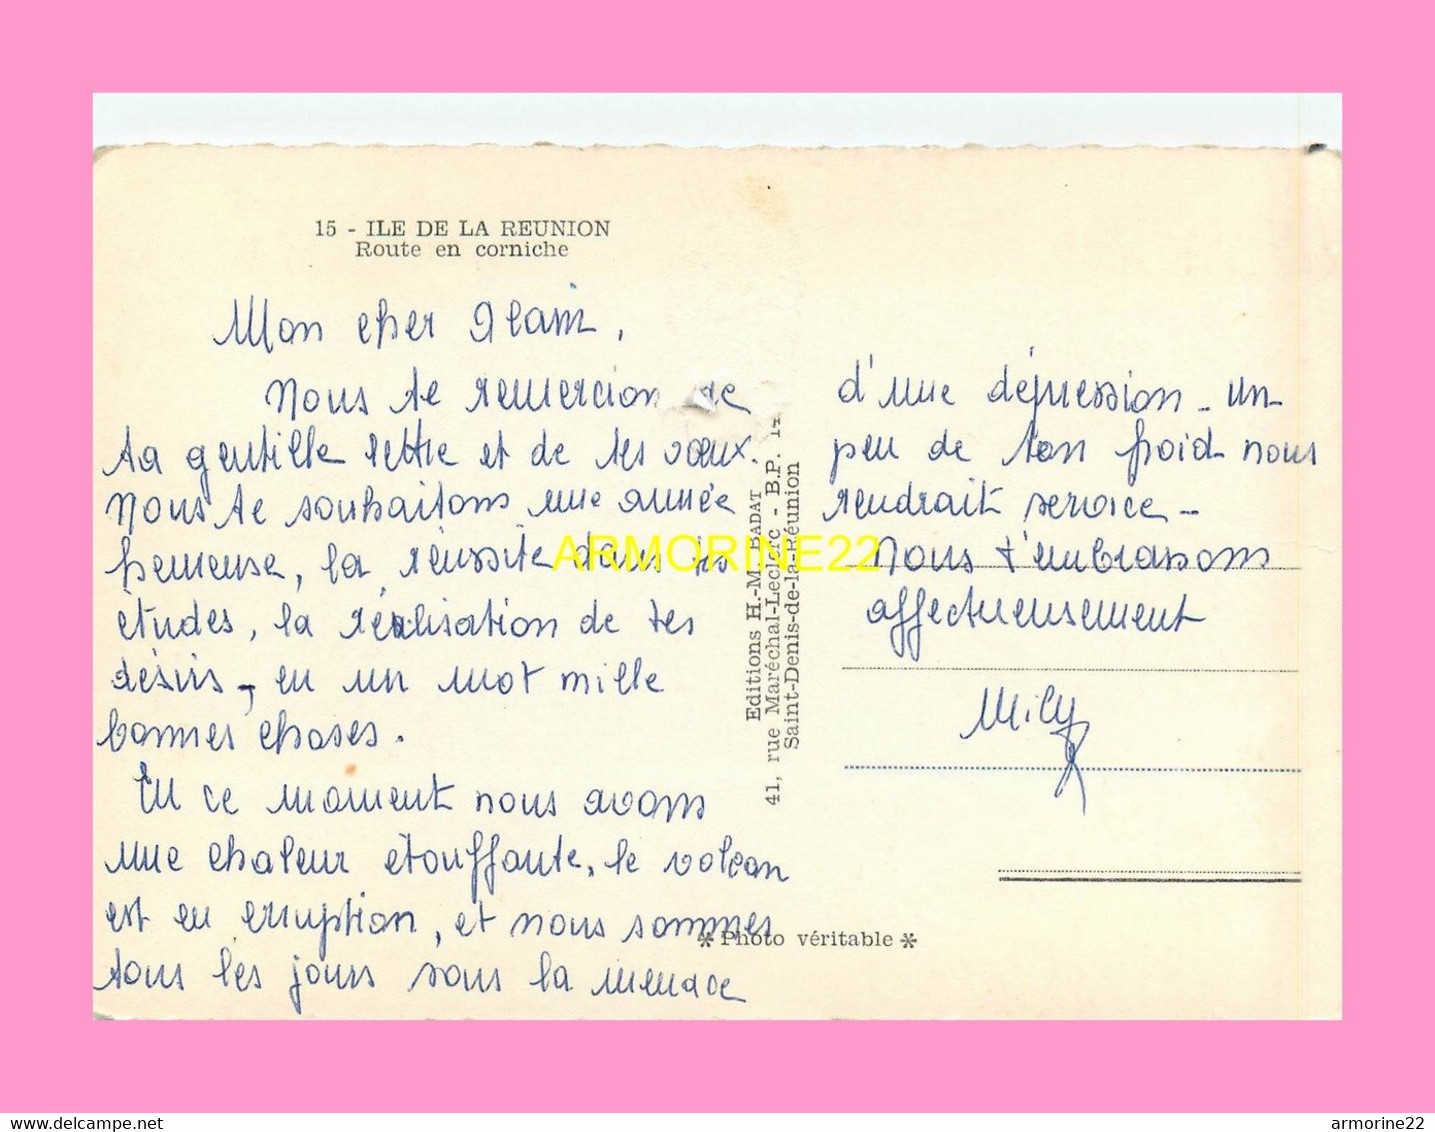 15 - ILE DE LA REUNION
Route en corniche
Mon cher Alain,
Nous te remercion de
ta gentille lettre et de tes vœux.
Nous te souhaitons une année
heureuse, la réussite dans tes
études, la réalisation de tes
désirs, en un mot mille
bonnes choses.
En ce moment nous avons
une chaleur étouffante, le volcan
est en eruption, et nous sommes
tous les jours sous la menace
d'une dépression - un
peu de ton froid nous
rendrait service -
Nous t'embrassons
affectueusement
Mily
Editions H.-M. BADAT
41, rue Maréchal-Leclerc - B.P. 14
Saint-Denis-de-la-Réunion
* Photo véritable *
ARMORINE22
www.delcampe.net
armorine22